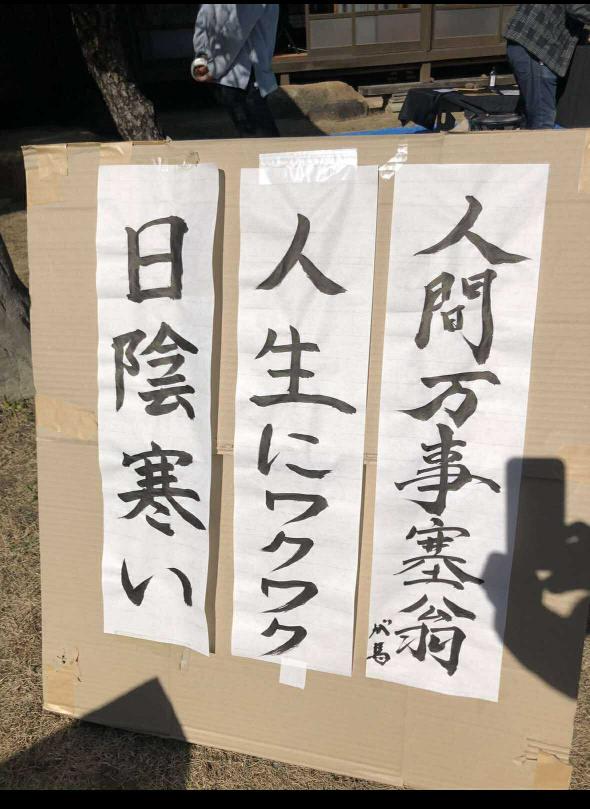 人間万事塞翁が馬
人生にワクワク
日陰寒い